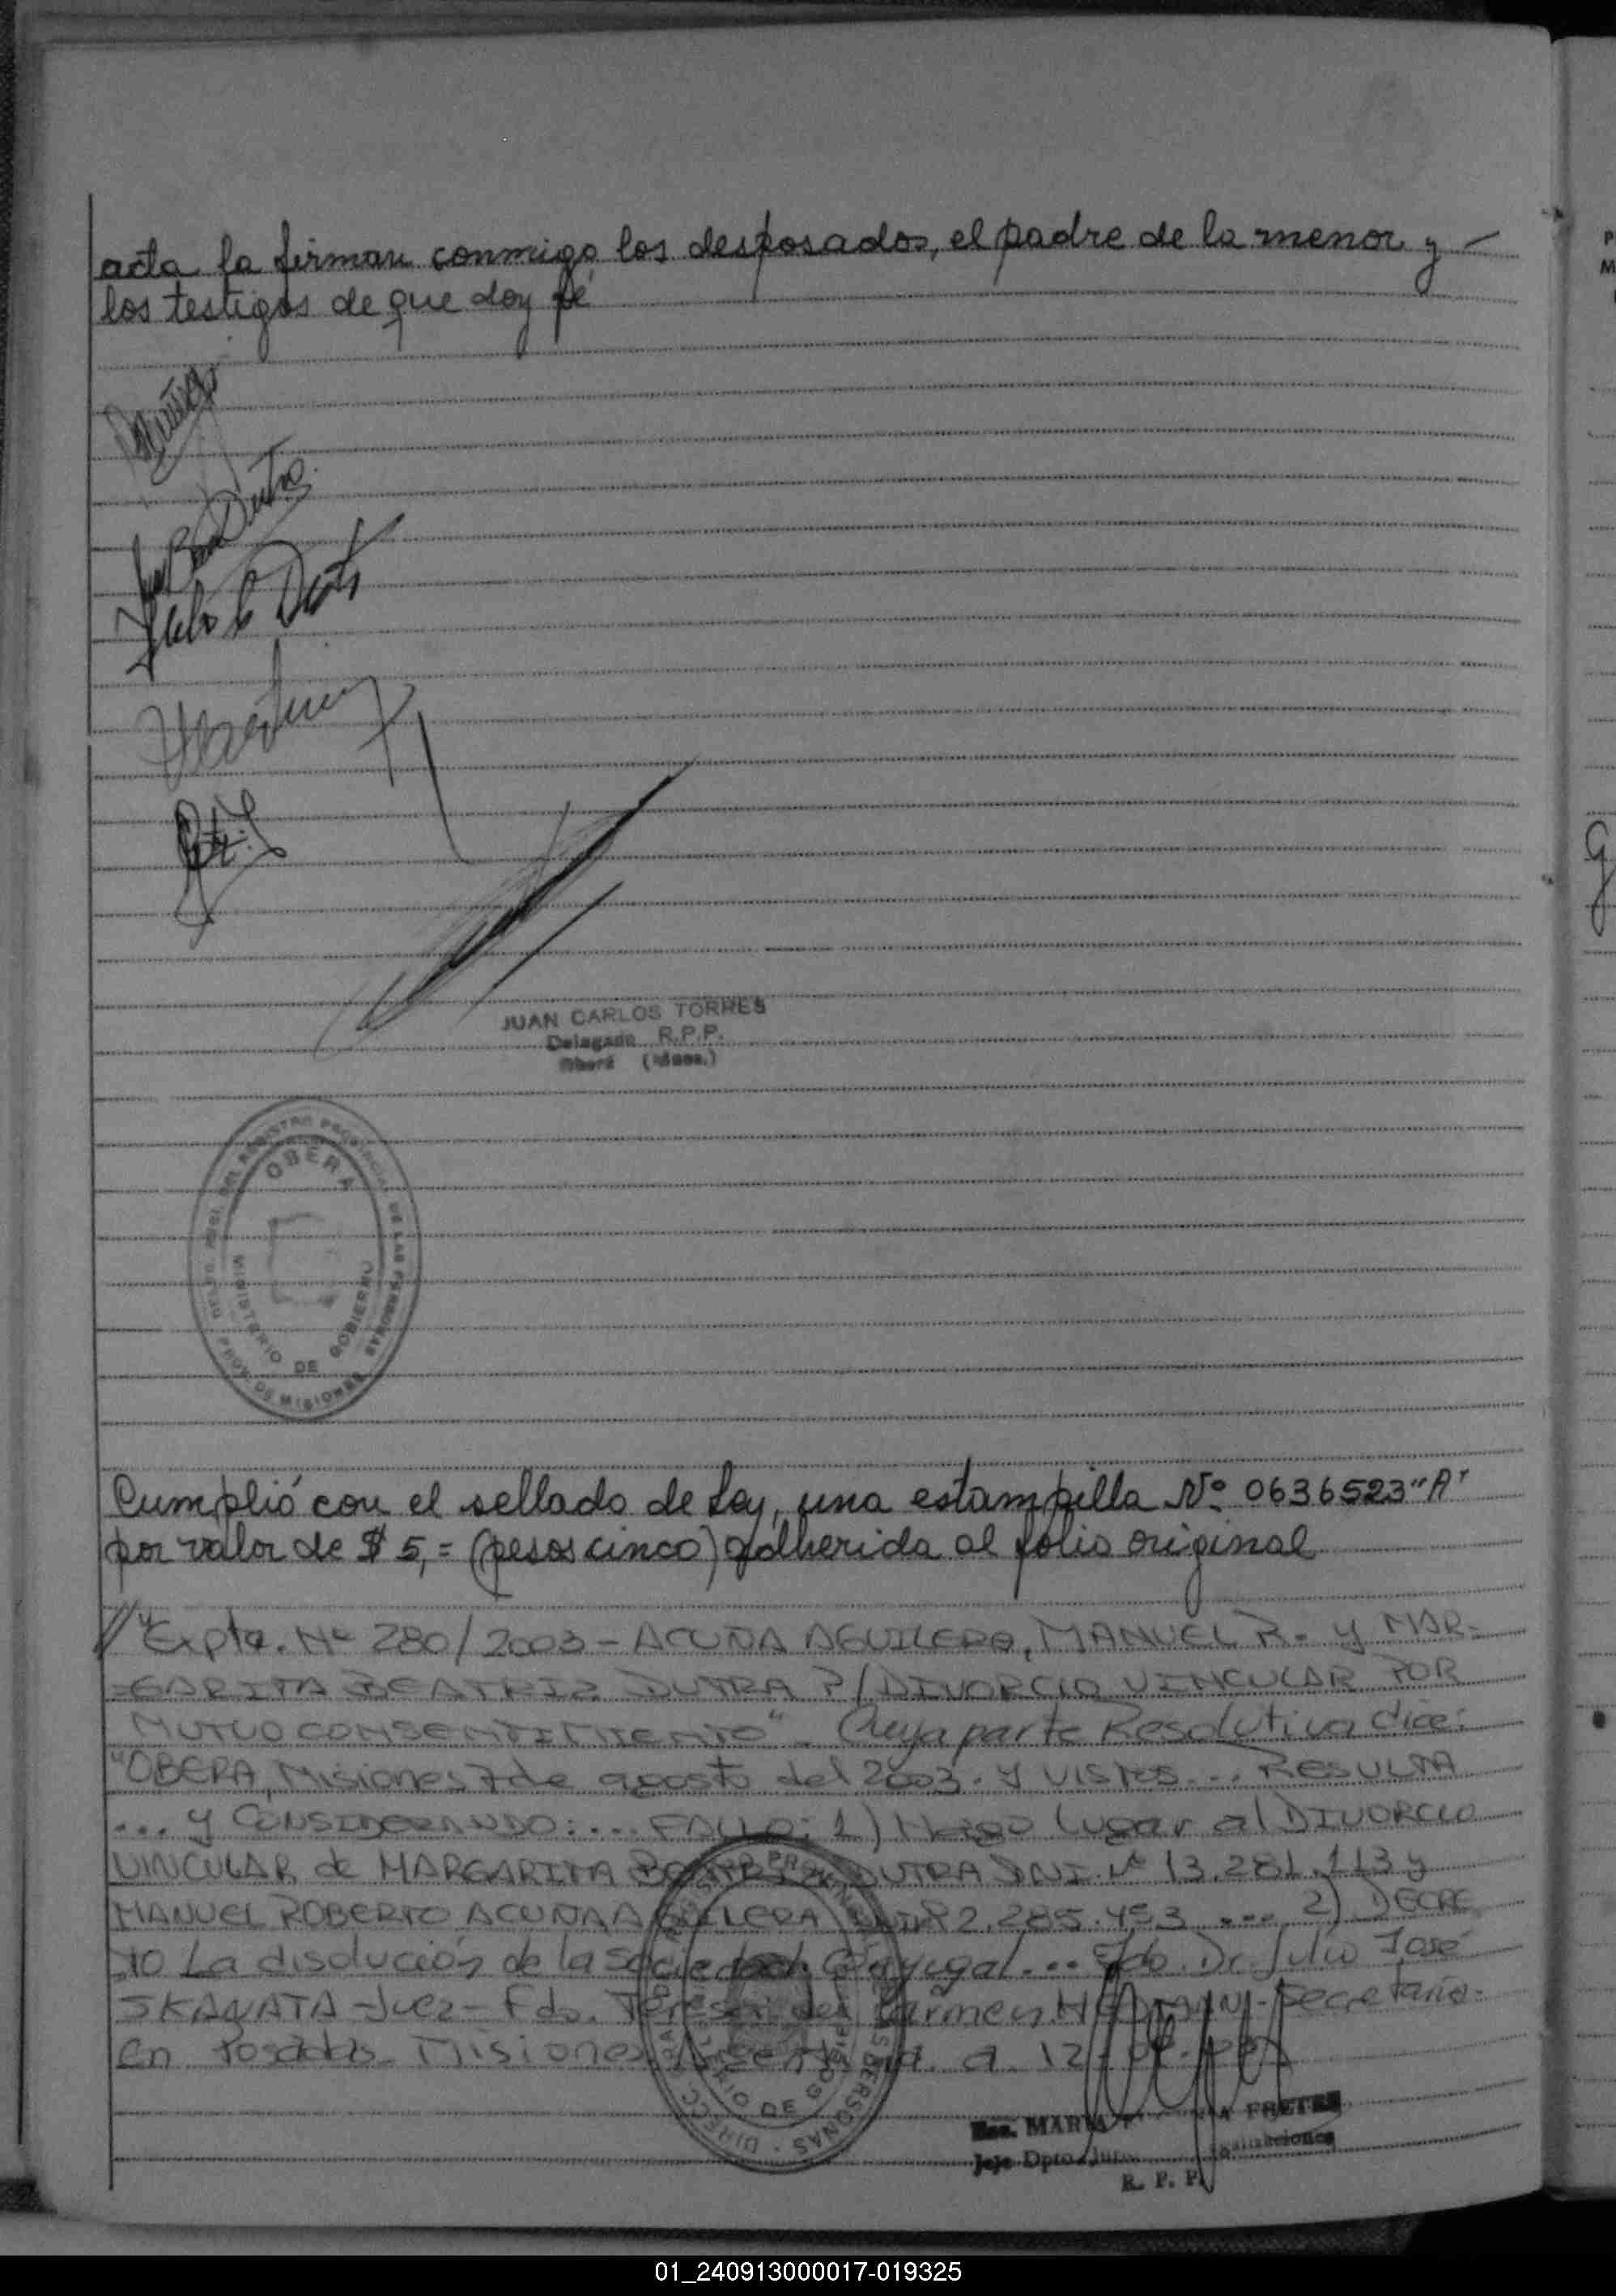 acta la firman conmigo los desposados, el padre de la menor y
los testigos de que doy fé
JUAN CARLOS TORRES
Delegado R.P.P.
Oberá (Mnes.)
OBERA
MINISTERIO DE GOBIERNO
PROV. DE MISIONES
Cumplió con el sellado de Ley, una estampilla Nº 0636523 "A"
por valor de $ 5,= (pesos cinco) adherida al folio original
//"Expte. Nº 280/2003 - ACUÑA AGUILERA, MANUEL R. y MAR-
=GARITA BEATRIZ DUTRA P/DIVORCIO VINCULAR POR
MUTUO CONSENTIMIENTO". Cuya parte Resolutiva dice:
"OBERA, Misiones 7 de agosto del 2003. Y VISTOS... RESULTA
... y CONSIDERANDO: .... FALLO: 1) Hago lugar al DIVORCIO
VINCULAR de MARGARITA BEATRIZ DUTRA DNI. Nº 13.281.113 y
MANUEL ROBERTO ACUÑA AGUILERA 92.285.453 ... 2) DECRE
TO La disolución de la Sociedad Conyugal... Fdo. Dr. Julio José
SKANATA - Juez - Fdo. Teresa del Carmen - Secretaria.
En Posadas Misiones a 12
MARIA FRETES
Jefe Dpto.
R. P. P.
01_240913000017-019325